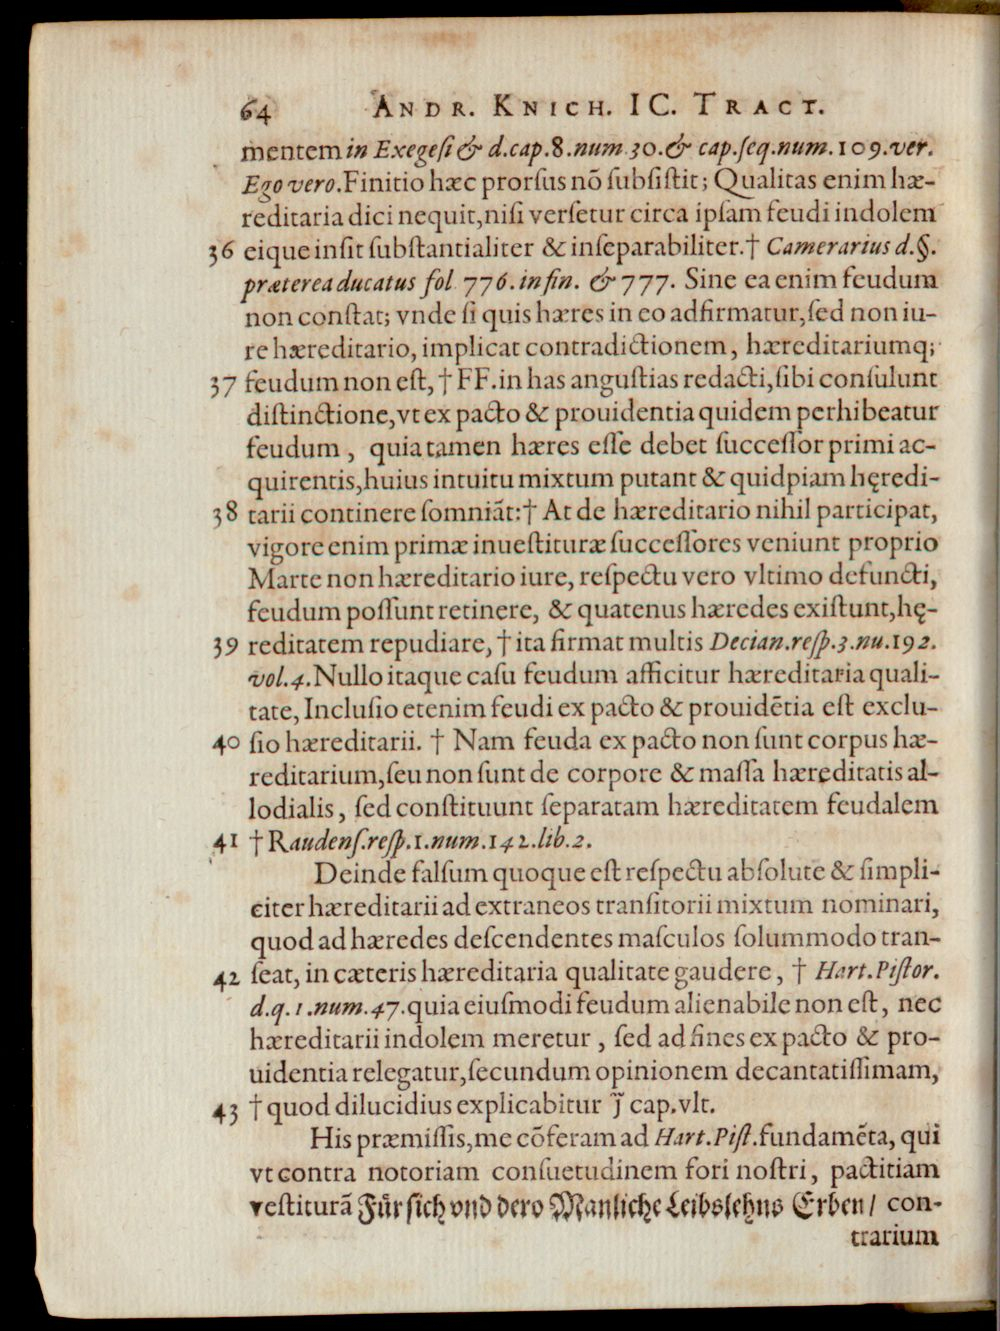 64 ANDR. KNICH. IC. TRACT.
mentem in Exegeſi & d.cap.8.num.30.& cap.ſeq.num.109.ver.
Ego vero.Finitio hæc prorſus nõ ſubſiſtit; Qualitas enim hæ-
reditaria dici nequit,niſi verſetur circa ipſam feudi indolem
36 eique inſit ſubſtantialiter & inſeparabiliter.† Camerarius d.§.
præterea ducatus fol 776. in fin. & 777. Sine ea enim feudum
non conſtat; vnde ſi quis hæres in eo adfirmatur,ſed non iu-
re hæreditario, implicat contradictionem, hæreditariumq;
37 feudum non eſt, † FF. in has anguſtias redacti,ſibi conſulunt
diſtinctione,vt ex pacto & prouidentia quidem perhibeatur
feudum, quia tamen hæres eſſe debet ſucceſſor primi ac-
quirentis,huius intuitu mixtum putant & quidpiam hęredi-
38 tarii continere ſomniãt:† At de hæreditario nihil participat,
vigore enim primæ inueſtituræ ſucceſſores veniunt proprio
Marte non hæreditario iure, reſpectu vero vltimo defuncti,
feudum poſſunt retinere, & quatenus hæredes exiſtunt,hę-
39 reditatem repudiare, † ita firmat multis Decian.reſp.3.nu.192.
vol.4.Nullo itaque caſu feudum afficitur hæreditaria quali-
tate, Incluſio etenim feudi ex pacto & prouidẽtia eſt exclu-
40 ſio hæreditarii. † Nam feuda ex pacto non ſunt corpus hæ-
reditarium,ſeu non ſunt de corpore & maſſa hæreditatis al-
lodialis, ſed conſtituunt ſeparatam hæreditatem feudalem
41 † Raudenſ.reſp.1.num.142.lib.2.
Deinde falſum quoque eſt reſpectu abſolute & ſimpli-
citer hæreditarii ad extraneos tranſitorii mixtum nominari,
quod ad hæredes deſcendentes maſculos ſolummodo tran-
42 ſeat, in cæteris hæreditaria qualitate gaudere, † Hart.Piſtor.
d.q.1.num.47.quia eiuſmodi feudum alienabile non eſt, nec
hæreditarii indolem meretur, ſed ad fines ex pacto & pro-
uidentia relegatur,ſecundum opinionem decantatiſſimam,
43 † quod dilucidius explicabitur j̃ cap.vlt.
His præmiſſis,me cõferam ad Hart.Piſt.fundamẽta, qui
vt contra notoriam conſuetudinem fori noſtri, pactitiam
veſtiturã Für ſich vnd dero Manliche Leibslehns Erben/ con-
trarium